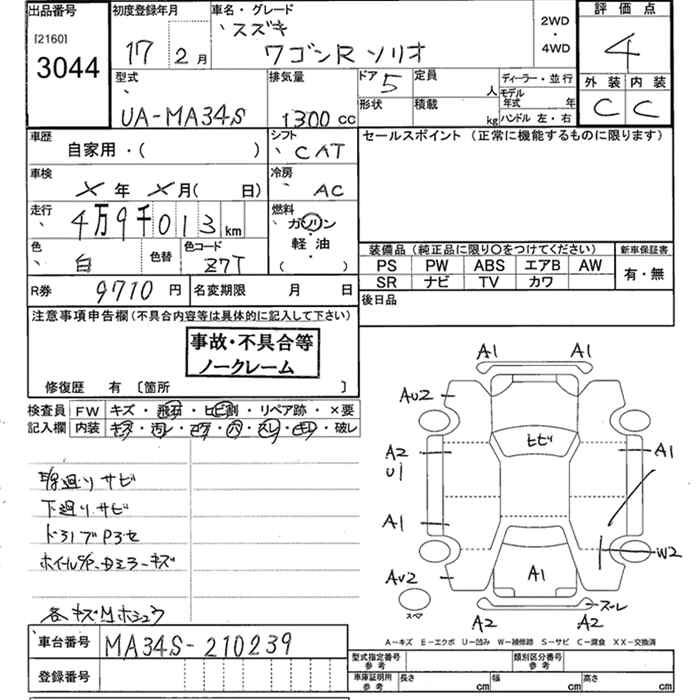 出品番号
[2160]
3044
初度登録年月
17 2月
車名・グレード
スズキ
ワゴンR ソリオ
2WD
・
4WD
評価点
4
外装 内装
C C
型式
UA-MA34S
排気量
1300 cc
ドア 5
形状
定員 人
積載 kg
ディーラー・並行
モデル年式 年
ハンドル 左・右
車歴
自家用・( )
シフト
CAT
セールスポイント (正常に機能するものに限ります)
車検
X年 X月( 日)
冷房
AC
走行
4万9千013km
燃料
ガソリン
・
軽油
( )
色
白
色替
色コード
Z7T
装備品 (純正品に限り〇をつけてください)
新車保証書
PS PW ABS エアB AW
SR ナビ TV カワ
有・無
R券 9710 円
名変期限 月 日
後日品
注意事項申告欄(不具合内容等は具体的に記入して下さい)
事故・不具合等
ノークレーム
修復歴 有 [箇所 ]
検査員
記入欄
FW キズ・飛石・ヒビ割・リペア跡・×要
内装 キズ・汚レ・コゲ・穴・スレ・キレ・破レ
線廻りサビ
下廻りサビ
ホイールC/P・Dミラーキズ
各キズMホシュウ
A1 A1
AU2
ヒビ
A2
U1
A1
A1
W2
AU2
A1
スペア
スレ
A2 A2
A-キズ E-エクボ U-凹み W-補修跡 S-サビ C-腐食 XX-交換済
車台番号
MA34S-210239
登録番号
型式指定番号
参考
類別区分番号
参考
車庫証明用
参考
長さ cm
幅 cm
高さ cm